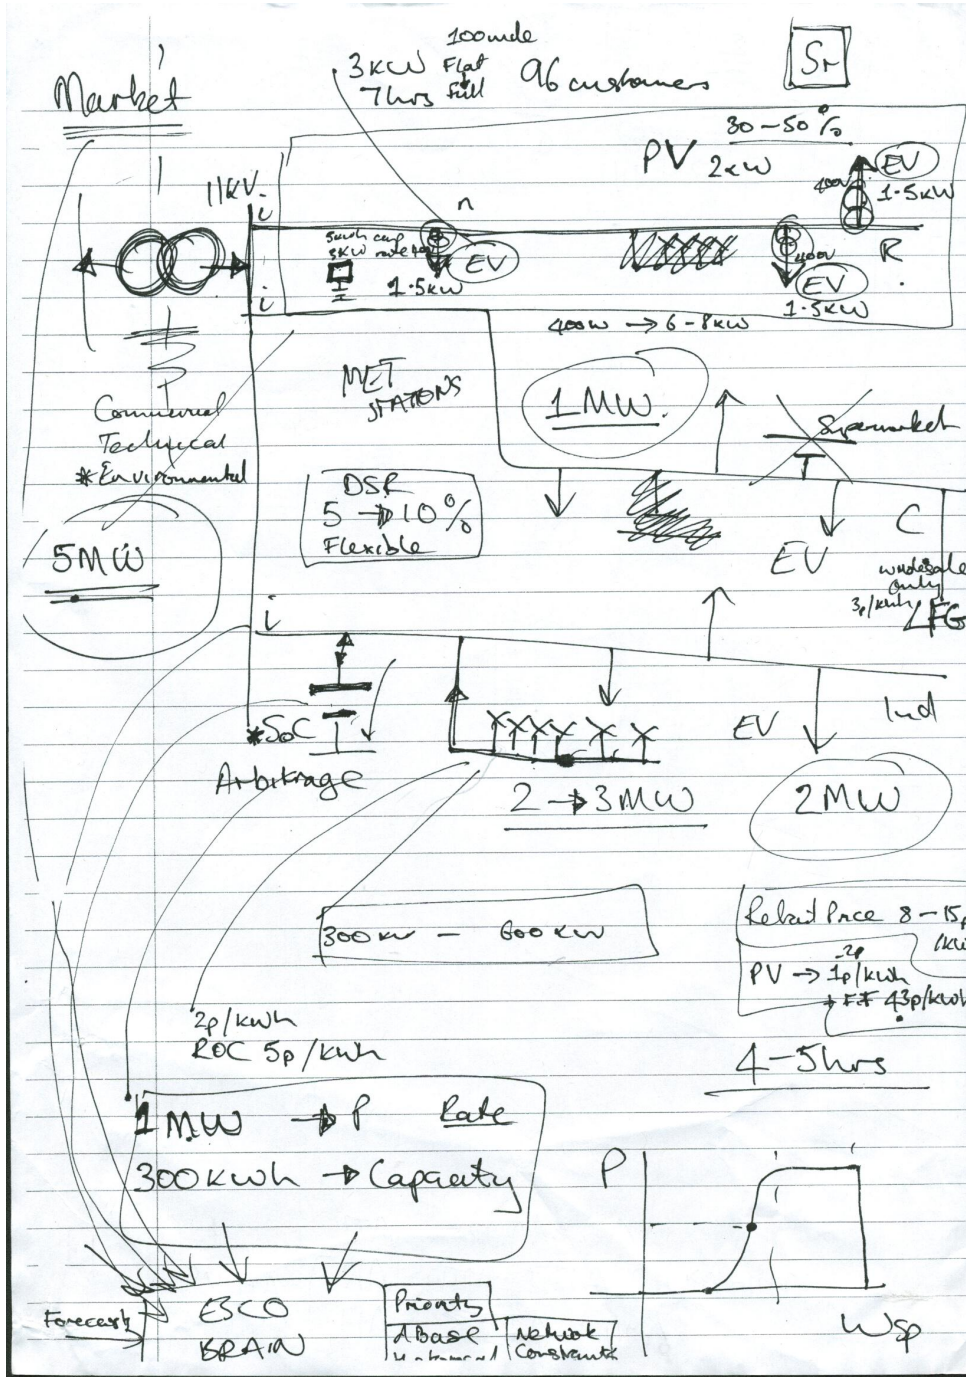 100mile
3KW Flat
7hrs full
96 customers
Sr
Market
30-50%
PV 2KW
EV
400W
1.5KW
11KV.
i
n
5kWh cap
3KW rate
EV
1.5KW
400W
EV
1.5KW
R
i
400W → 6-8KW
MET
STATIONS
1MW.
Commercial
Technical
*Environmental
Supermarket
DSR
5 → 10%
Flexible
5MW
EV
C
wholesale
only
3p/kWh
LFG
i
*SoC
Arbitrage
EV
Ind
2 → 3MW
2MW
300KW - 600KW
Retail Price 8-15p
/KW
2p
PV → 1p/kWh
+ FIT 43p/kWh
2p/kWh
ROC 5p/kWh
4-5hrs
1MW → P Rate
300KWh → Capacity
P
Wsp
Forecasts
ESCO
BRAIN
Priority
dBase
Network
Constraints